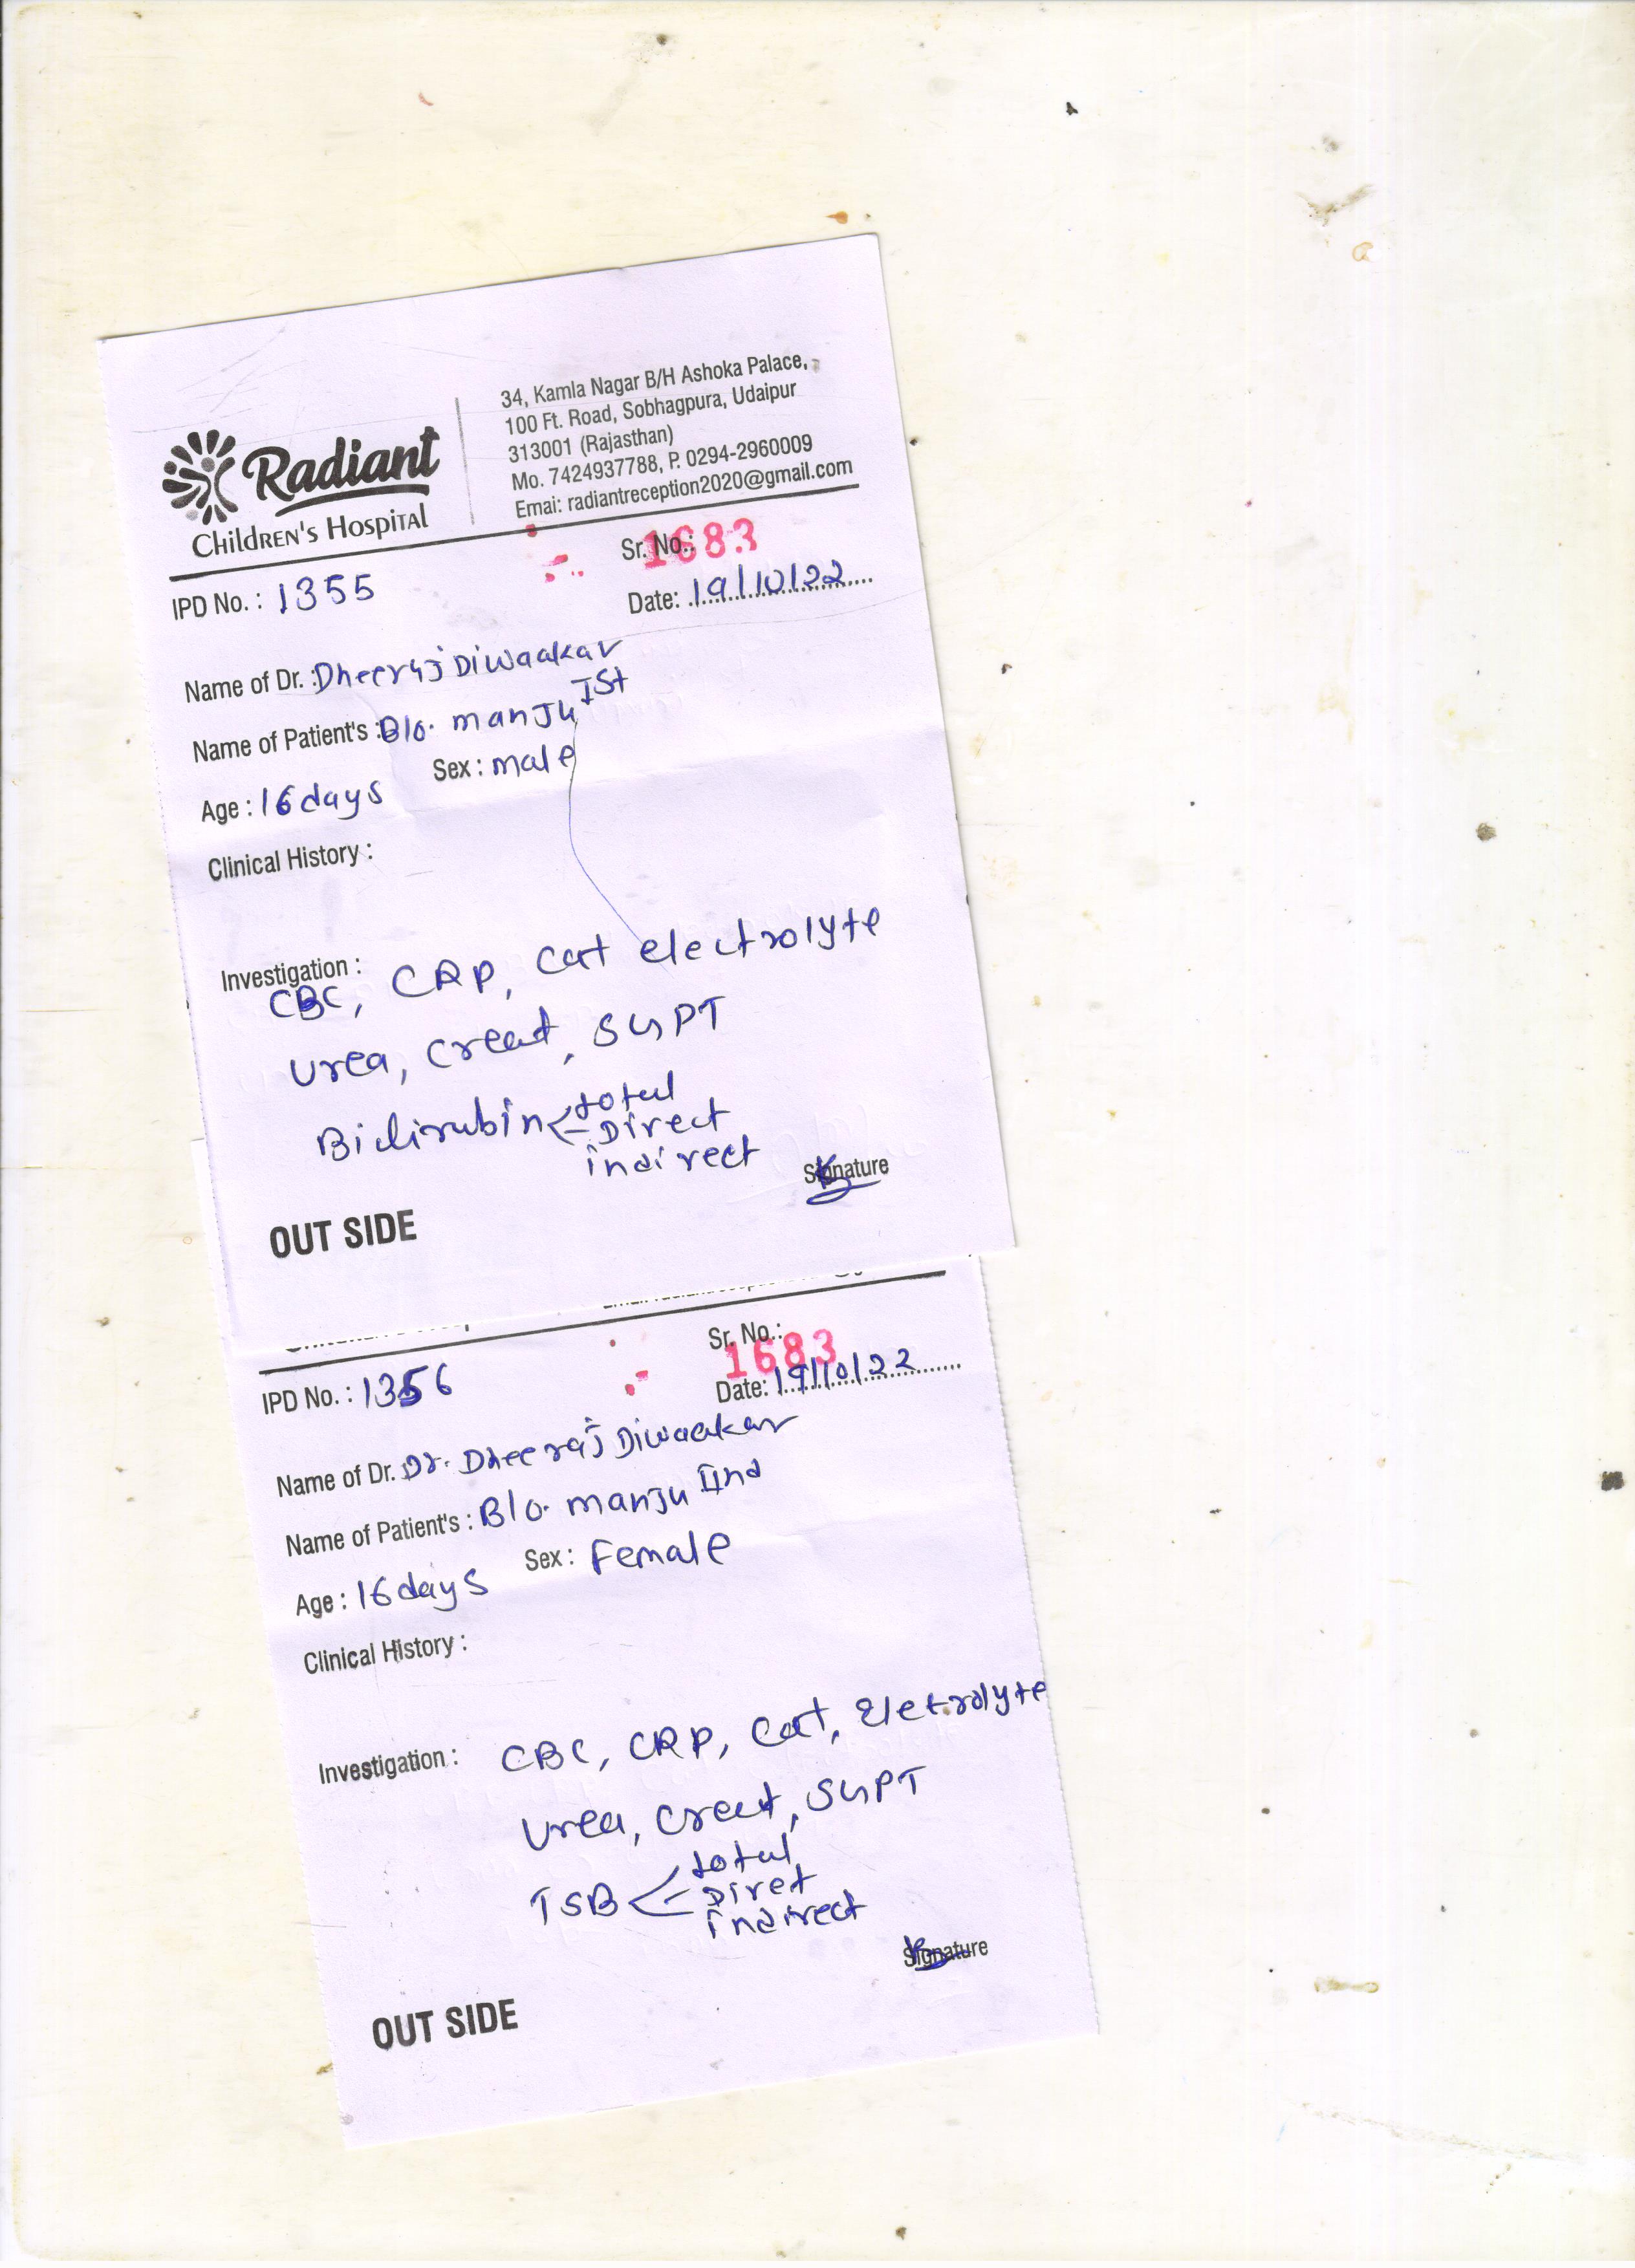 Radiant
Children's Hospital
34, Kamla Nagar B/H Ashoka Palace,
100 Ft. Road, Sobhagpura, Udaipur
313001 (Rajasthan)
Mo. 7424937788, P. 0294-2960009
Emai: radiantreception2020@gmail.com
IPD No. : 1355
Sr. No.: 1683
Date: 19/10/22
Name of Dr. : Dheeraj Diwaakar
Name of Patient's : B/o. manju Ist
Age : 16 days Sex : male
Clinical History :
Investigation :
CBC, CRP, Cat electrolyte
Urea, Creat, SGPT
Bilirubin < total
Direct
indirect
Signature
OUT SIDE
IPD No. : 1356
Sr. No.: 1683
Date: 19/10/22
Name of Dr. Dr. Dheeraj Diwaakar
Name of Patient's : B/o. manju IInd
Age : 16 days Sex : Female
Clinical History :
Investigation : CBC, CRP, Cat, Eletrolyte
Urea, Creat, SGPT
TSB < total
Diret
indirect
Signature
OUT SIDE